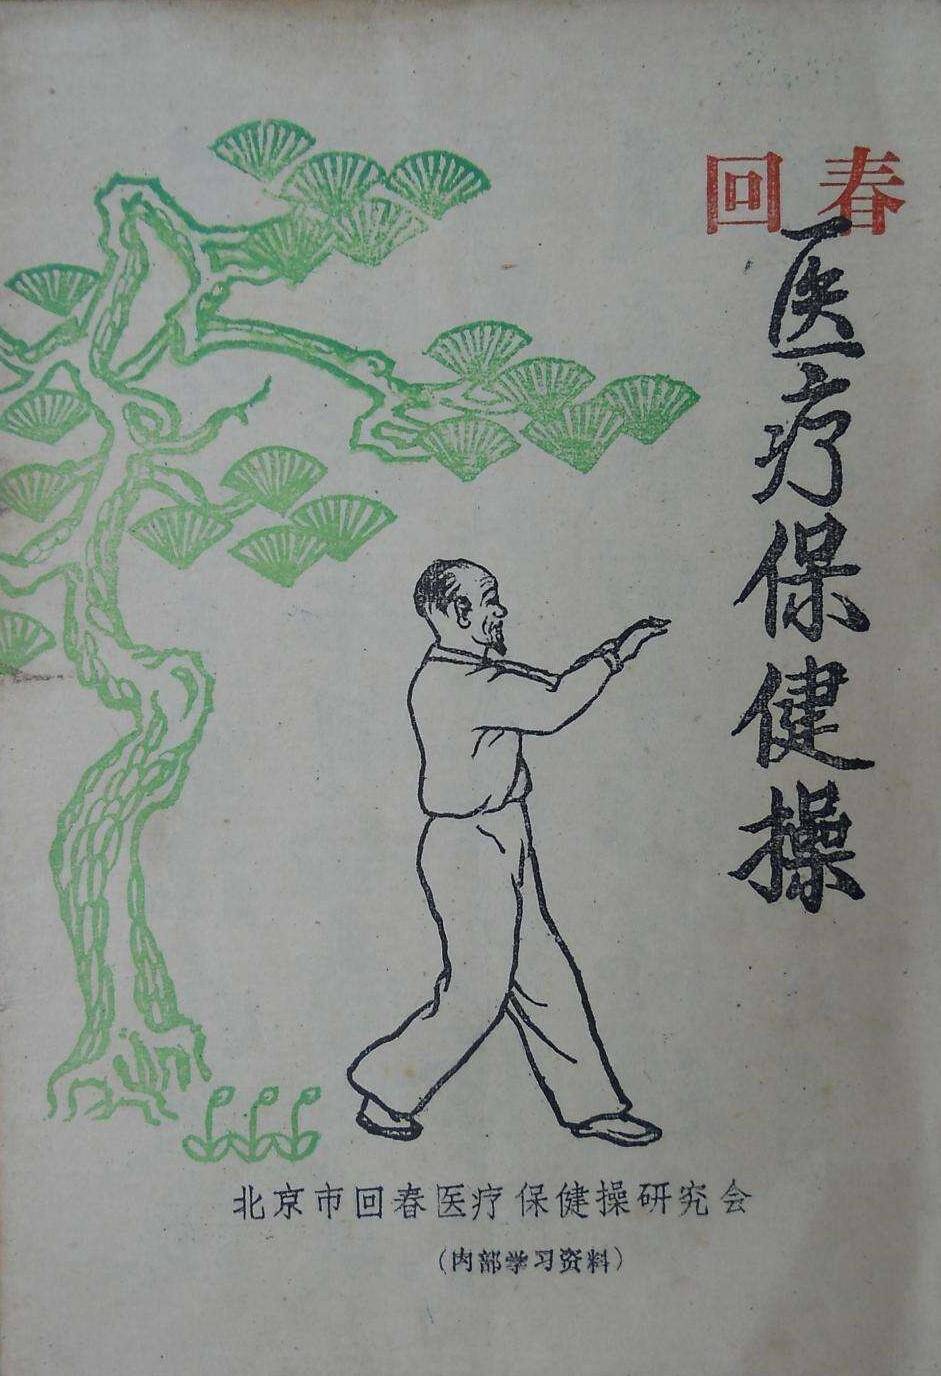 回春
医疗保健操
北京市回春医疗保健操研究会
(内部学习资料)